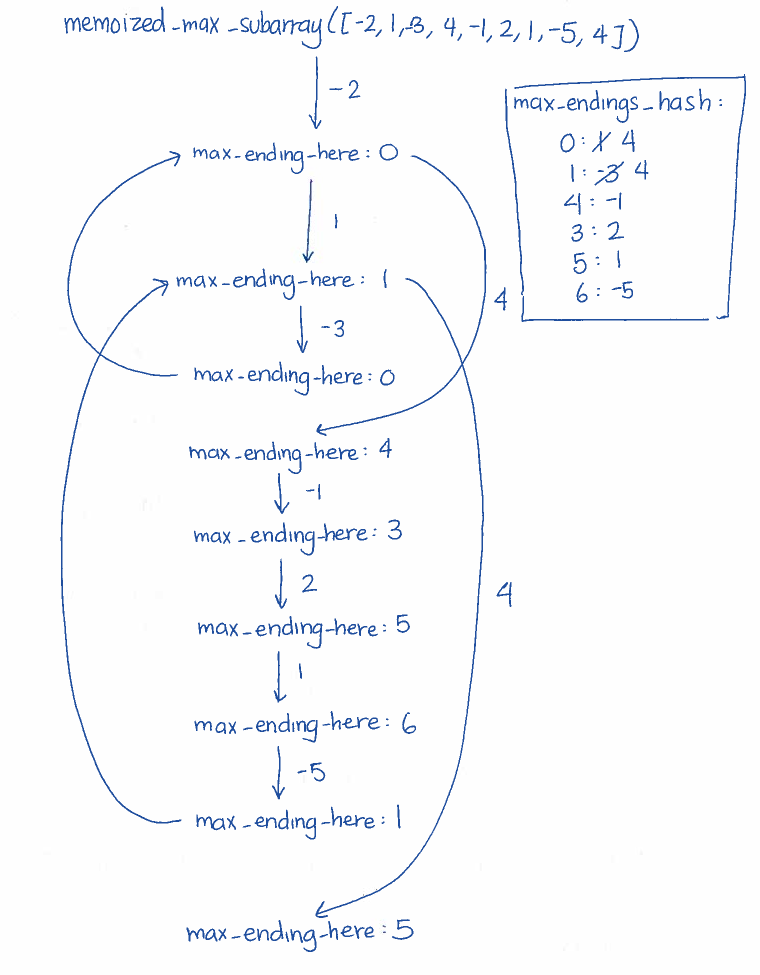 memoized_max_subarray([-2, 1, -3, 4, -1, 2, 1, -5, 4])
-2
max_ending_here: 0
1
max_ending_here: 1
-3
max_ending_here: 0
4
max_ending_here: 4
-1
max_ending_here: 3
2
max_ending_here: 5
1
max_ending_here: 6
-5
max_ending_here: 1
4
max_ending_here: 5
max_endings_hash:
0: 1 4
1: -3 4
4: -1
3: 2
5: 1
6: -5